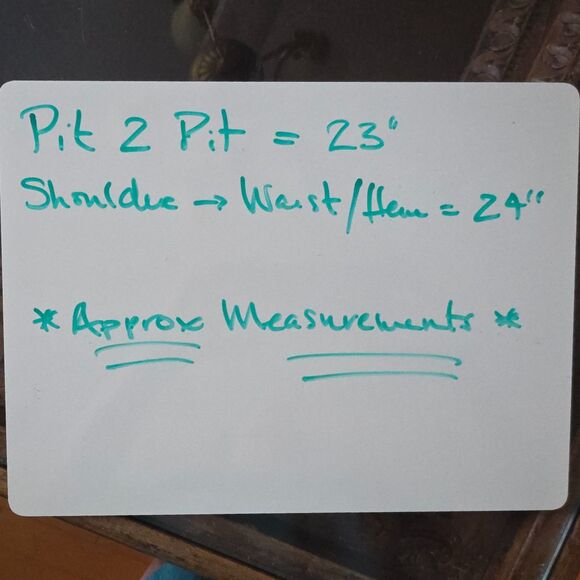 Pit 2 Pit = 23"
Shoulder → Waist/Hem = 24"
* Approx Measurements *